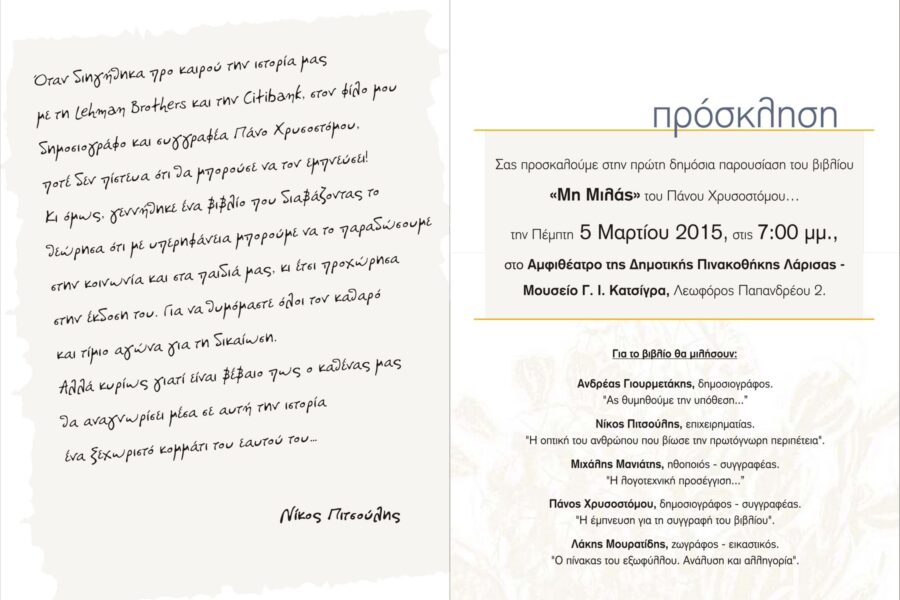 Όταν διηγήθηκα προ καιρού την ιστορία μας
με τη Lehman Brothers και την Citibank, στον φίλο μου
δημοσιογράφο και συγγραφέα Πάνο Χρυσοστόμου,
ποτέ δεν πίστευα ότι θα μπορούσε να τον εμπνεύσει!
Κι όμως, γεννήθηκε ένα βιβλίο που διαβάζοντας το
θεώρησα ότι με υπερηφάνεια μπορούμε να το παραδώσουμε
στην κοινωνία και στα παιδιά μας, κι έτσι προχώρησα
στην έκδοση του. Για να θυμόμαστε όλοι τον καθαρό
και τίμιο αγώνα για τη δικαίωση.
Αλλά κυρίως γιατί είναι βέβαιο πως ο καθένας μας
θα αναγνωρίσει μέσα σε αυτή την ιστορία
ένα ξεχωριστό κομμάτι του εαυτού του...
Νίκος Πιτσούλης
πρόσκληση
Σας προσκαλούμε στην πρώτη δημόσια παρουσίαση του βιβλίου
«Μη Μιλάς» του Πάνου Χρυσοστόμου...
την Πέμπτη 5 Μαρτίου 2015, στις 7:00 μμ.,
στο Αμφιθέατρο της Δημοτικής Πινακοθήκης Λάρισας -
Μουσείο Γ. Ι. Κατσίγρα, Λεωφόρος Παπανδρέου 2.
Για το βιβλίο θα μιλήσουν:
Ανδρέας Γιουρμετάκης, δημοσιογράφος.
"Ας θυμηθούμε την υπόθεση..."
Νίκος Πιτσούλης, επιχειρηματίας.
"Η οπτική του ανθρώπου που βίωσε την πρωτόγνωρη περιπέτεια".
Μιχάλης Μανιάτης, ηθοποιός - συγγραφέας.
"Η λογοτεχνική προσέγγιση..."
Πάνος Χρυσοστόμου, δημοσιογράφος - συγγραφέας.
"Η έμπνευση για τη συγγραφή του βιβλίου".
Λάκης Μουρατίδης, ζωγράφος - εικαστικός.
"Ο πίνακας του εξωφύλλου. Ανάλυση και αλληγορία".